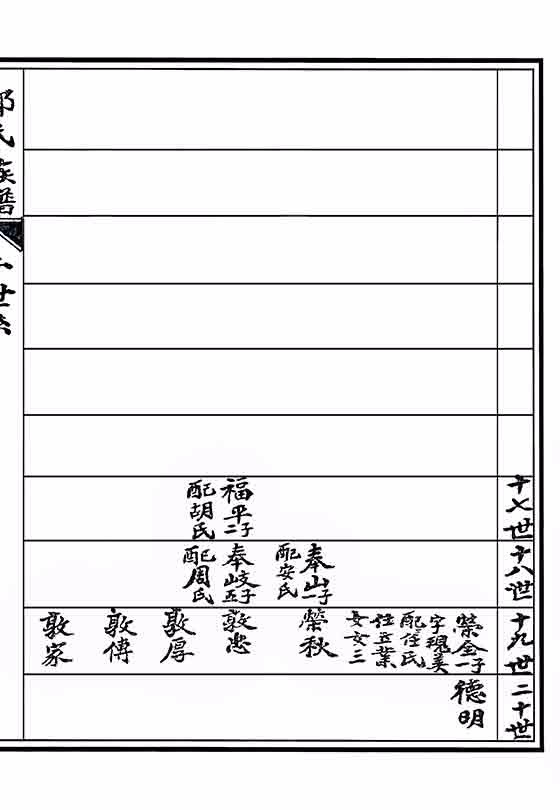 十七世
福平 二子
配胡氏
十八世
奉山 一子
配安氏
奉岐 五子
配周氏
十九世
榮全 一子
配任氏
女 三
榮秋
敦忠
敦厚
敦傳
敦家
二十世
德明
氏族譜